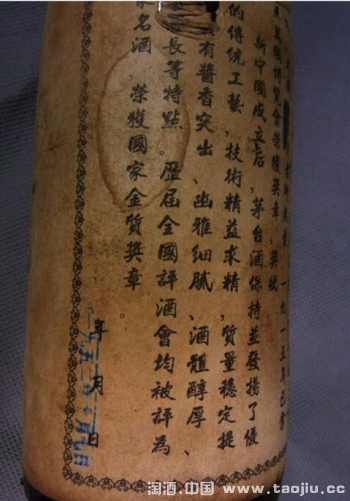 一九一五年巴
國博覽會榮獲奨章、奨狀
新中國成立后,茅台酒保持並發揚了優
的傳統工藝,技術精益求精,質量穩定提
有醬香突出、幽雅細膩、酒體醇厚、
長等特點。歷屆全國評酒會均被評為
家名酒 榮獲國家金質奨章
年 月 日
淘酒.中国 · www.taojiu.cc